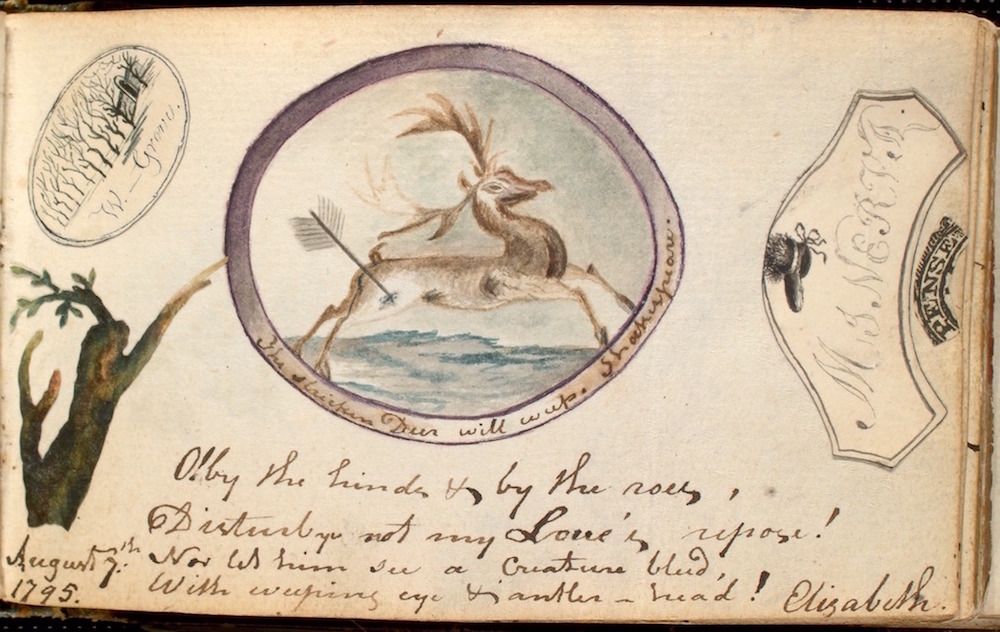 W. Grove.
The stricken Deer will weep. Shakespeare.
MINERVA
PENSE
O! by the hinds & by the roes,
Disturb ye not my Love's repose!
Nor let him see a Creature bleed,
With weeping eye & antler-head!
August 7th.
1795.
Elizabeth.